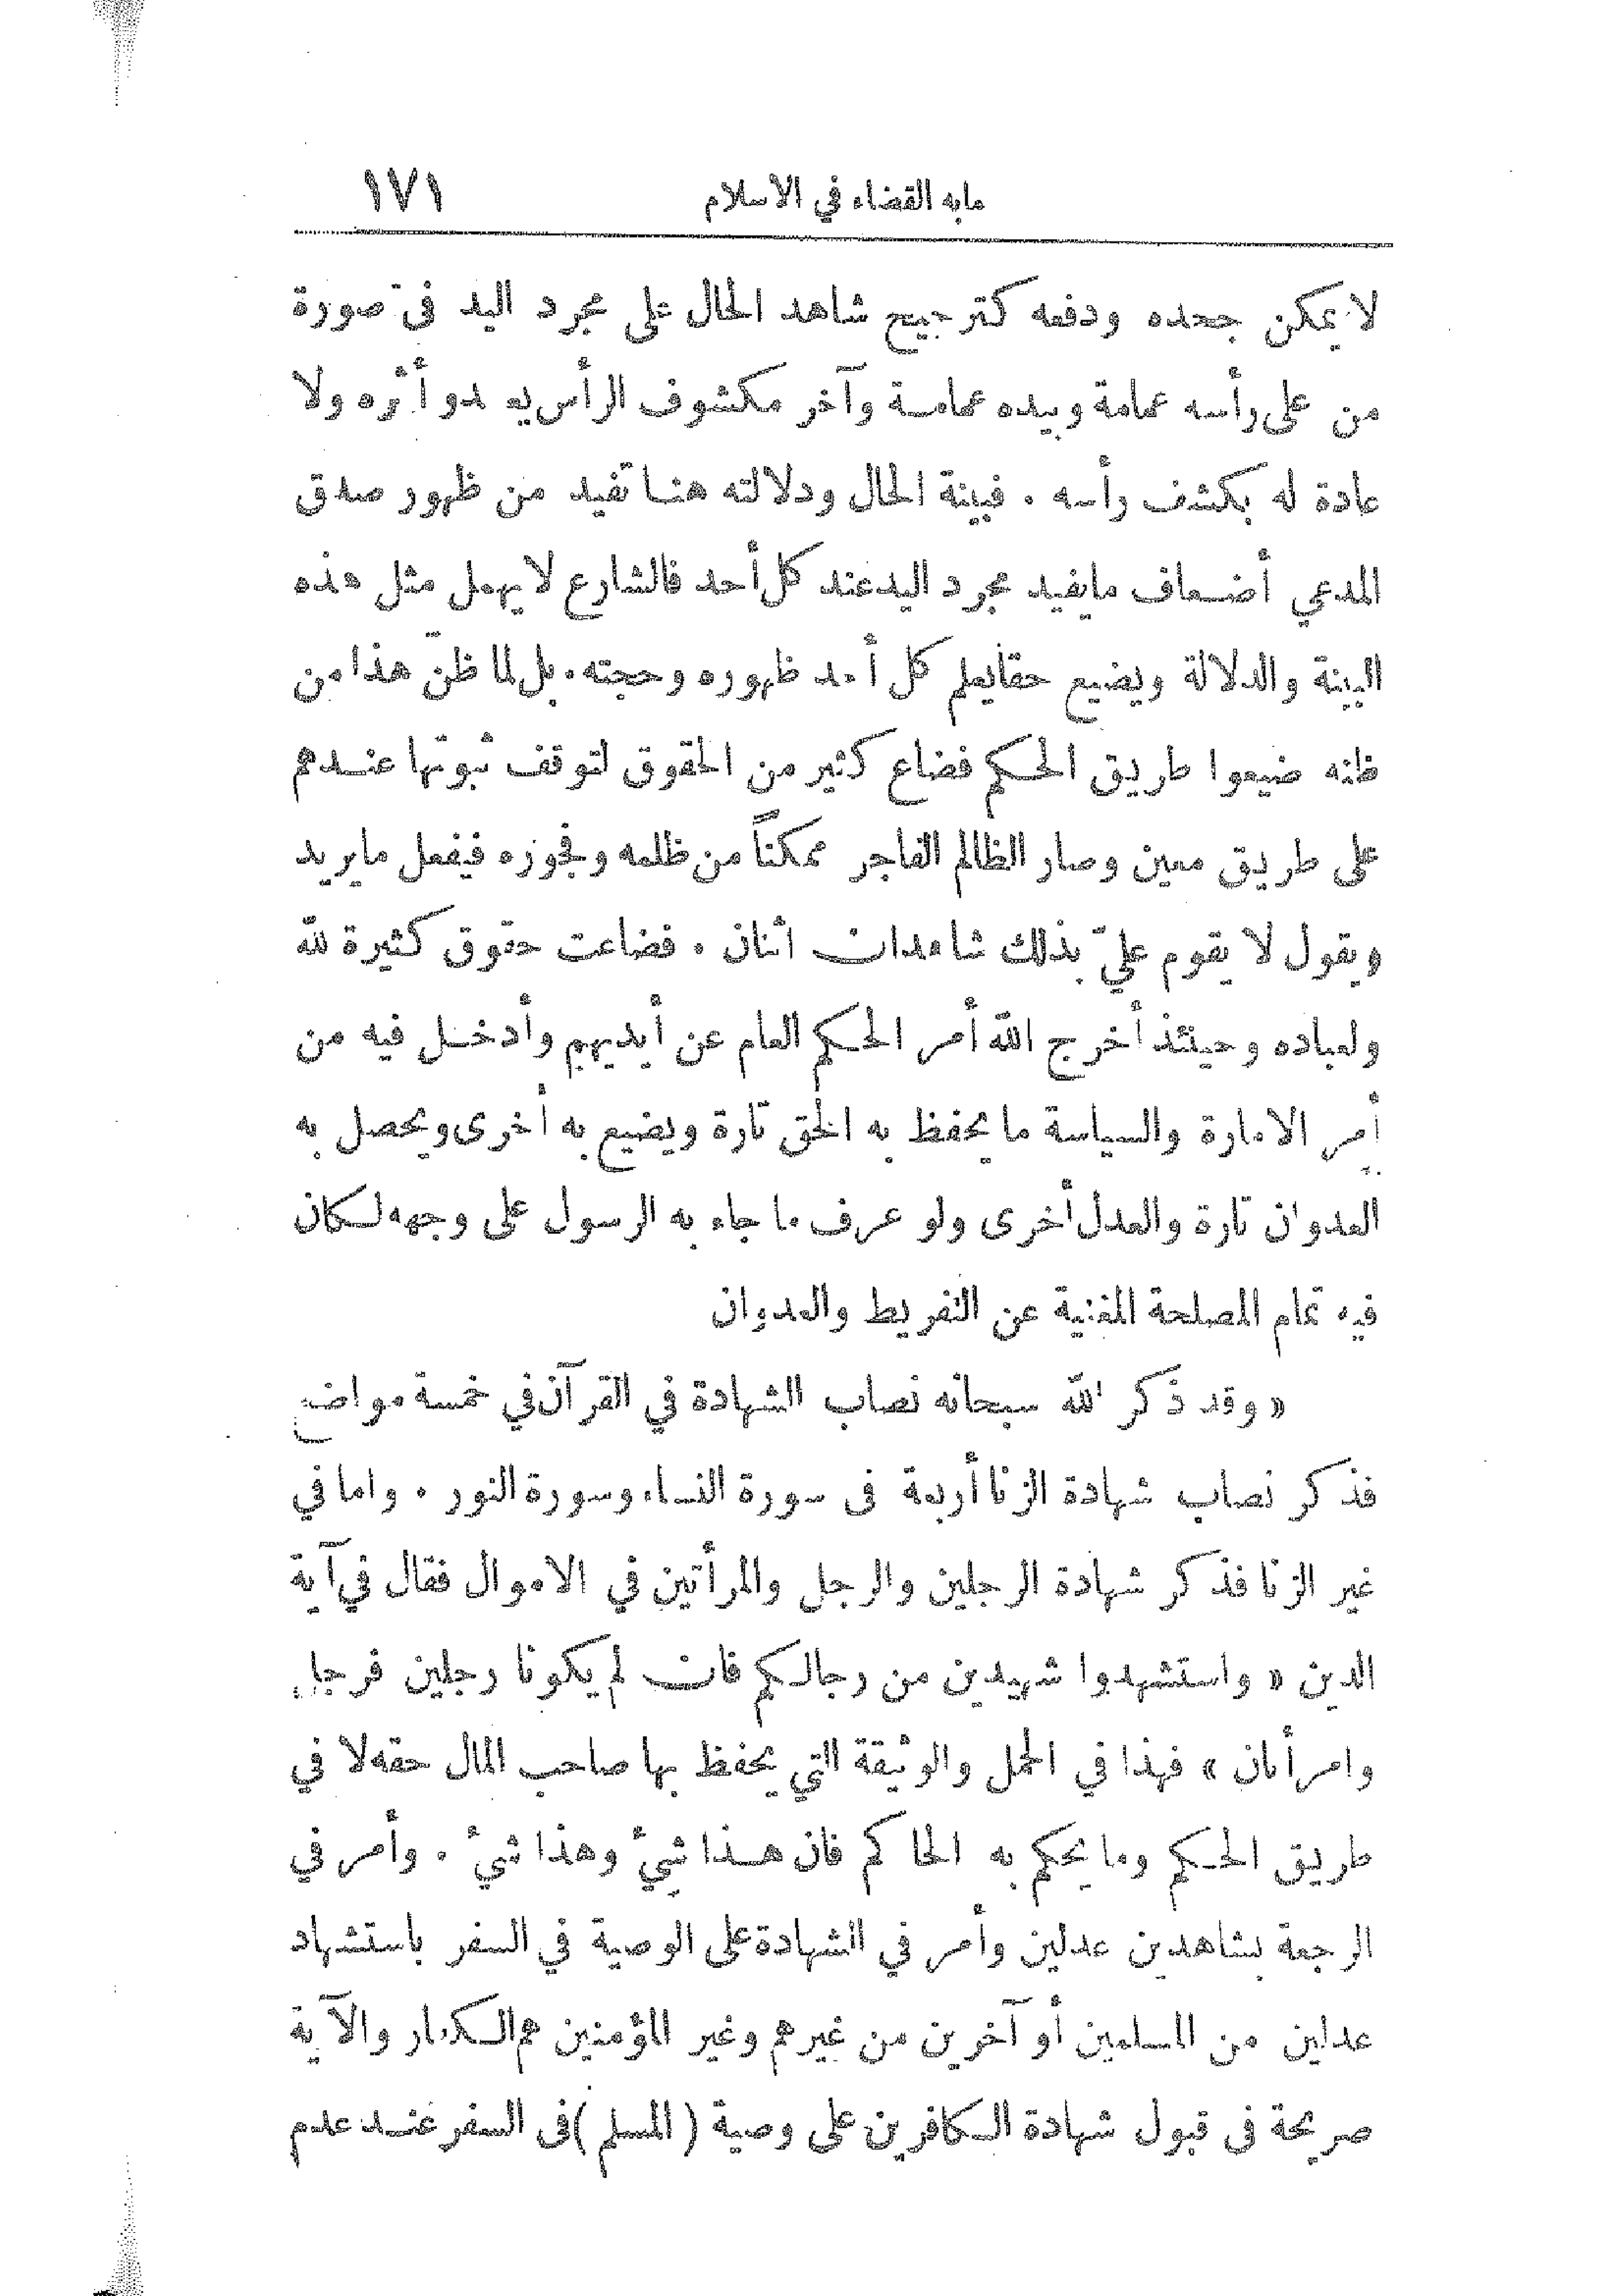 مابه القضاء في الاسلام ١٧١
لا يمكن جحده ودفعه كترجيح شاهد الحال على مجرد اليد فى صورة
من على رأسه عمامة وبيده عمامة وآخر مكشوف الرأس يعدو أثره ولا
عادة له بكشف رأسه . فبينة الحال ودلالته هنا تفيد من ظهور صدق
المدعي أضعاف ما يفيد مجرد اليد عند كل أحد فالشارع لا يهمل مثل هذه
البينة والدلالة ويضيع حقا يعلم كل أحد ظهوره وحجته . بل لما ظنّ هذا من
ظنه ضيعوا طريق الحكم فضاع كثير من الحقوق لتوقف ثبوتها عندهم
على طريق معين وصار الظالم الفاجر ممكناً من ظلمه وفجوره فيفعل ما يريد
ويقول لا يقوم عليّ بذلك شاهدان اثنان . فضاعت حقوق كثيرة لله
ولعباده وحينئذ أخرج الله أمر الحكم العام عن أيديهم وأدخل فيه من
أمر الامارة والسياسة ما يحفظ به الحق تارة ويضيع به أخرى ويحصل به
العدوان تارة والعدل أخرى ولو عرف ما جاء به الرسول على وجهه لكان
فيه تمام المصلحة المغنية عن التفريط والعدوان
« وقد ذكر الله سبحانه نصاب الشهادة في القرآن في خمسة مواضع
فذكر نصاب شهادة الزنا أربعة فى سورة النساء وسورة النور . واما في
غير الزنا فذكر شهادة الرجلين والرجل والمرأتين في الاموال فقال في آية
الدين « واستشهدوا شهيدين من رجالكم فان لم يكونا رجلين فرجل
وامرأتان » فهذا في الحمل والوثيقة التي يحفظ بها صاحب المال حقه لا في
طريق الحكم وما يحكم به الحاكم فان هذا شيء وهذا شيء . وأمر في
الرجعة بشاهدين عدلين وأمر في الشهادة على الوصية في السفر باستشهاد
عدلين من المسلمين أو آخرين من غيرهم وغير المؤمنين هم الكفار والآية
صريحة فى قبول شهادة الكافرين على وصية ( المسلم ) فى السفر عند عدم